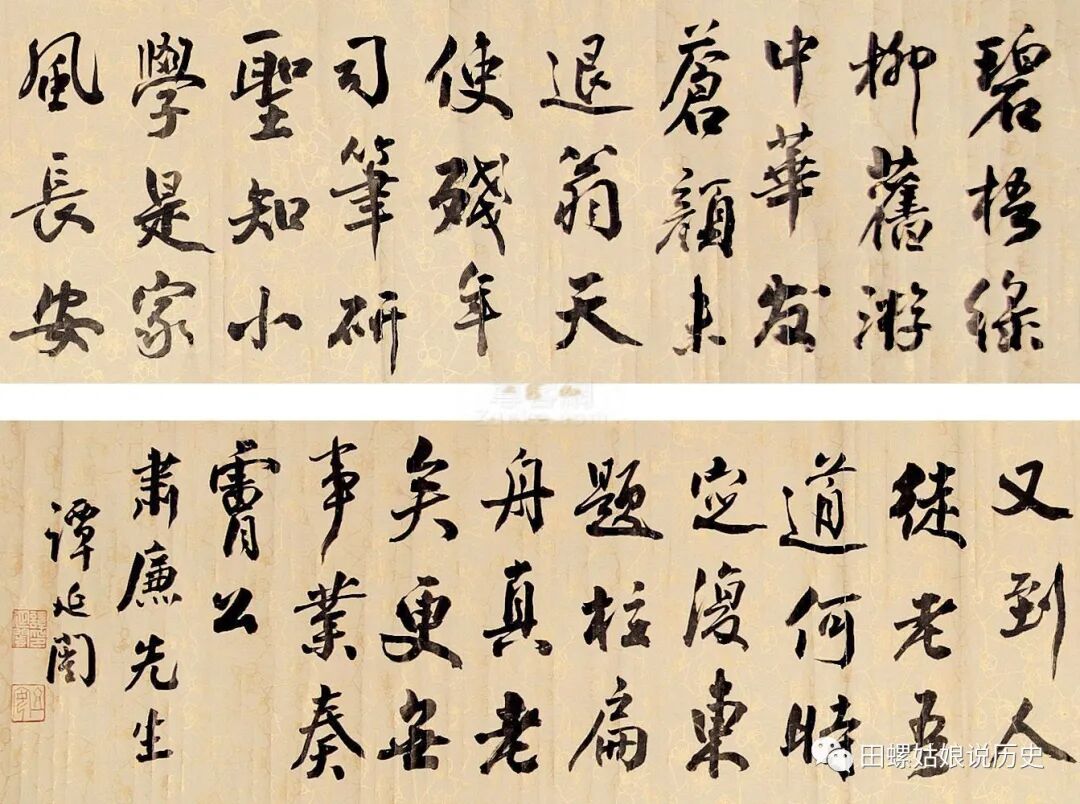 碧梧綠
柳舊游
中華髮
蒼顏未
退翁天
使殘年
司筆研
聖知小
學是家
風長安
又到人
徒老吾
道何時
定復東
題柱扁
舟真老
矣更無
事業奏
霄公
肅廉先生
譚延闓
田螺姑娘说历史